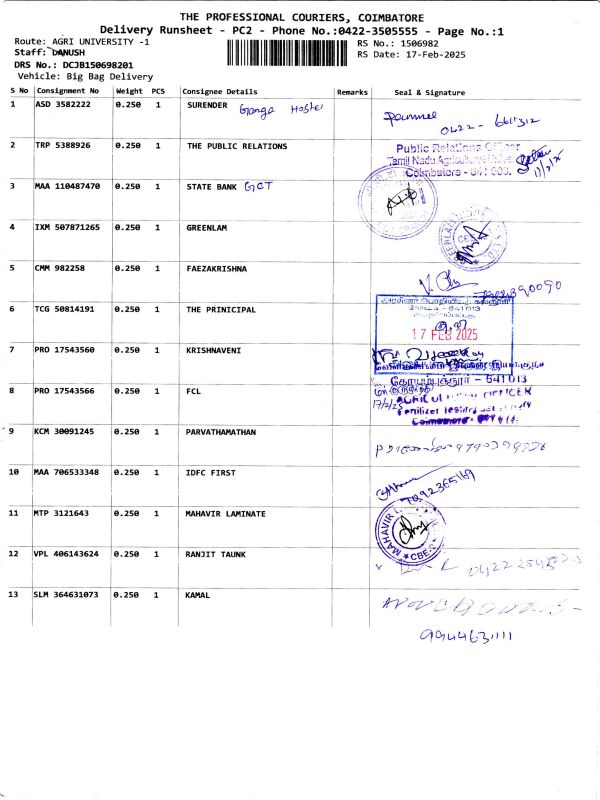 THE PROFESSIONAL COURIERS, COIMBATORE
Delivery Runsheet - PC2 - Phone No.:0422-3505555 - Page No.:1
Route: AGRI UNIVERSITY -1
RS No.: 1506982
Staff: DANUSH
RS Date: 17-Feb-2025
DRS No.: DCJB150698201
Vehicle: Big Bag Delivery
S No Consignment No Weight PCS Consignee Details Remarks Seal & Signature
1 ASD 3582222 0.250 1 SURENDER Ganga Hostel
0422 - 6611312
2 TRP 5388926 0.250 1 THE PUBLIC RELATIONS
Public Relations Officer
Tamil Nadu Agricultural
Coimbatore - 641 003.
3 MAA 110487470 0.250 1 STATE BANK GCT
4 IXM 507871265 0.250 1 GREENLAM
5 CMM 982258 0.250 1 FAEZAKRISHNA
6 TCG 50814191 0.250 1 THE PRINICIPAL
17 FEB 2025
7 PRO 17543560 0.250 1 KRISHNAVENI
கோயம்புத்தூர் - 641 013
8 PRO 17543566 0.250 1 FCL
17/2/25
9 KCM 30091245 0.250 1 PARVATHAMATHAN
10 MAA 706533348 0.250 1 IDFC FIRST
11 MTP 3121643 0.250 1 MAHAVIR LAMINATE
MAHAVIR
CBE
12 VPL 406143624 0.250 1 RANJIT TAUNK
13 SLM 364631073 0.250 1 KAMAL
9944631111